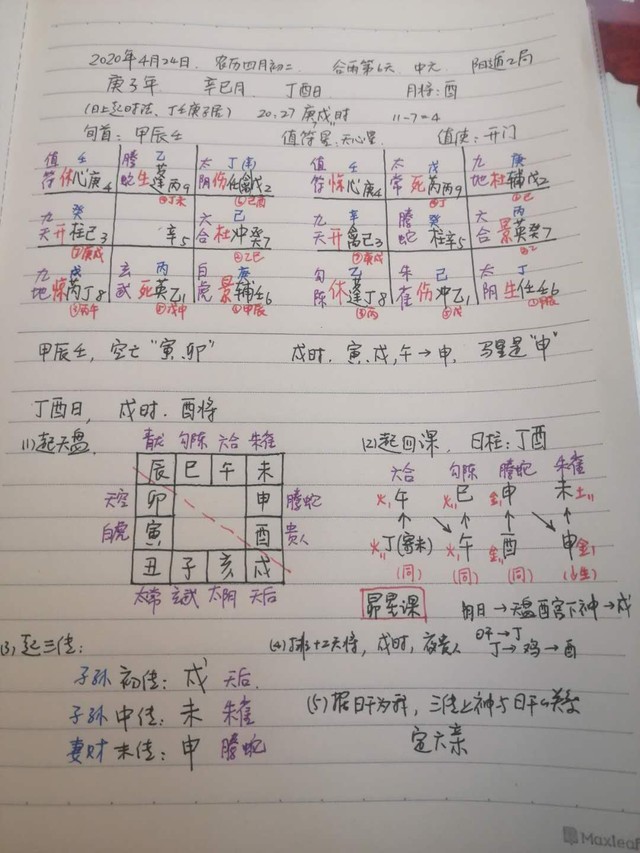 2020年4月24日. 农历四月初二. 谷雨第6天. 中元. 阳遁2局
庚子年 辛巳月 丁酉日 月将:酉
(日上起时法、丁壬庚子居) 20:27 庚戌时 11-7=4
旬首: 甲辰壬 值符星:天心星. 值使:开门
值 壬 腾 乙 太 丁(辛) 值 壬 太 戊 九 庚
符 休心庚4 蛇 生蓬丙9 阴 伤任禽戊2 符 惊心庚4 常 死芮丙9 地 杜辅戊2
④丁未 ⑥己酉 ⑥丁 ④己
九 癸 六 己 九 辛 腾 癸 六 丙
天 开柱己3 辛5 合 杜冲癸7 天 开禽己3 蛇 柱辛5 合 景英癸7
⑦庚戌 ②乙巳 ⑦庚戌
九 戊 玄 丙 白 庚 勾 乙 朱 己 太 丁
地 惊芮丁8 武 死英乙1 虎 景辅壬6 陈 休蓬丁8 雀 伤冲乙1 阴 生任壬6
③丙午 ⑤戊申 ①甲辰 ①甲辰
甲辰壬, 空亡"寅.卯" 戌时. 寅.戌.午→申, 马星是"申"
丁酉日, 戌时. 酉将
(1)起天盘. 青龙 勾陈 六合 朱雀 (2)起四课. 日柱:丁酉
辰 巳 午 未 六合 勾陈 腾蛇 朱雀
天空 卯 申 腾蛇 火,午 火,巳 金,申 未土,,
白虎 寅 酉 贵人 火,丁(寄未) 火,午 金,酉 申金,
丑 子 亥 戌 (同) (同) (同) (生)
太常 玄武 太阴 天后 昴星课 阴日→天盘酉宫下神→戌
(3)起三传: (4)排十二天将, 戌时, 夜贵人 日干→丁
丁→鸡→酉
子孙 初传: 戌 天后.
子孙 中传: 未 朱雀 (5)据日干为我, 三传上神与日干的关系
妻财 末传: 申 腾蛇 定六亲
Maxleaf